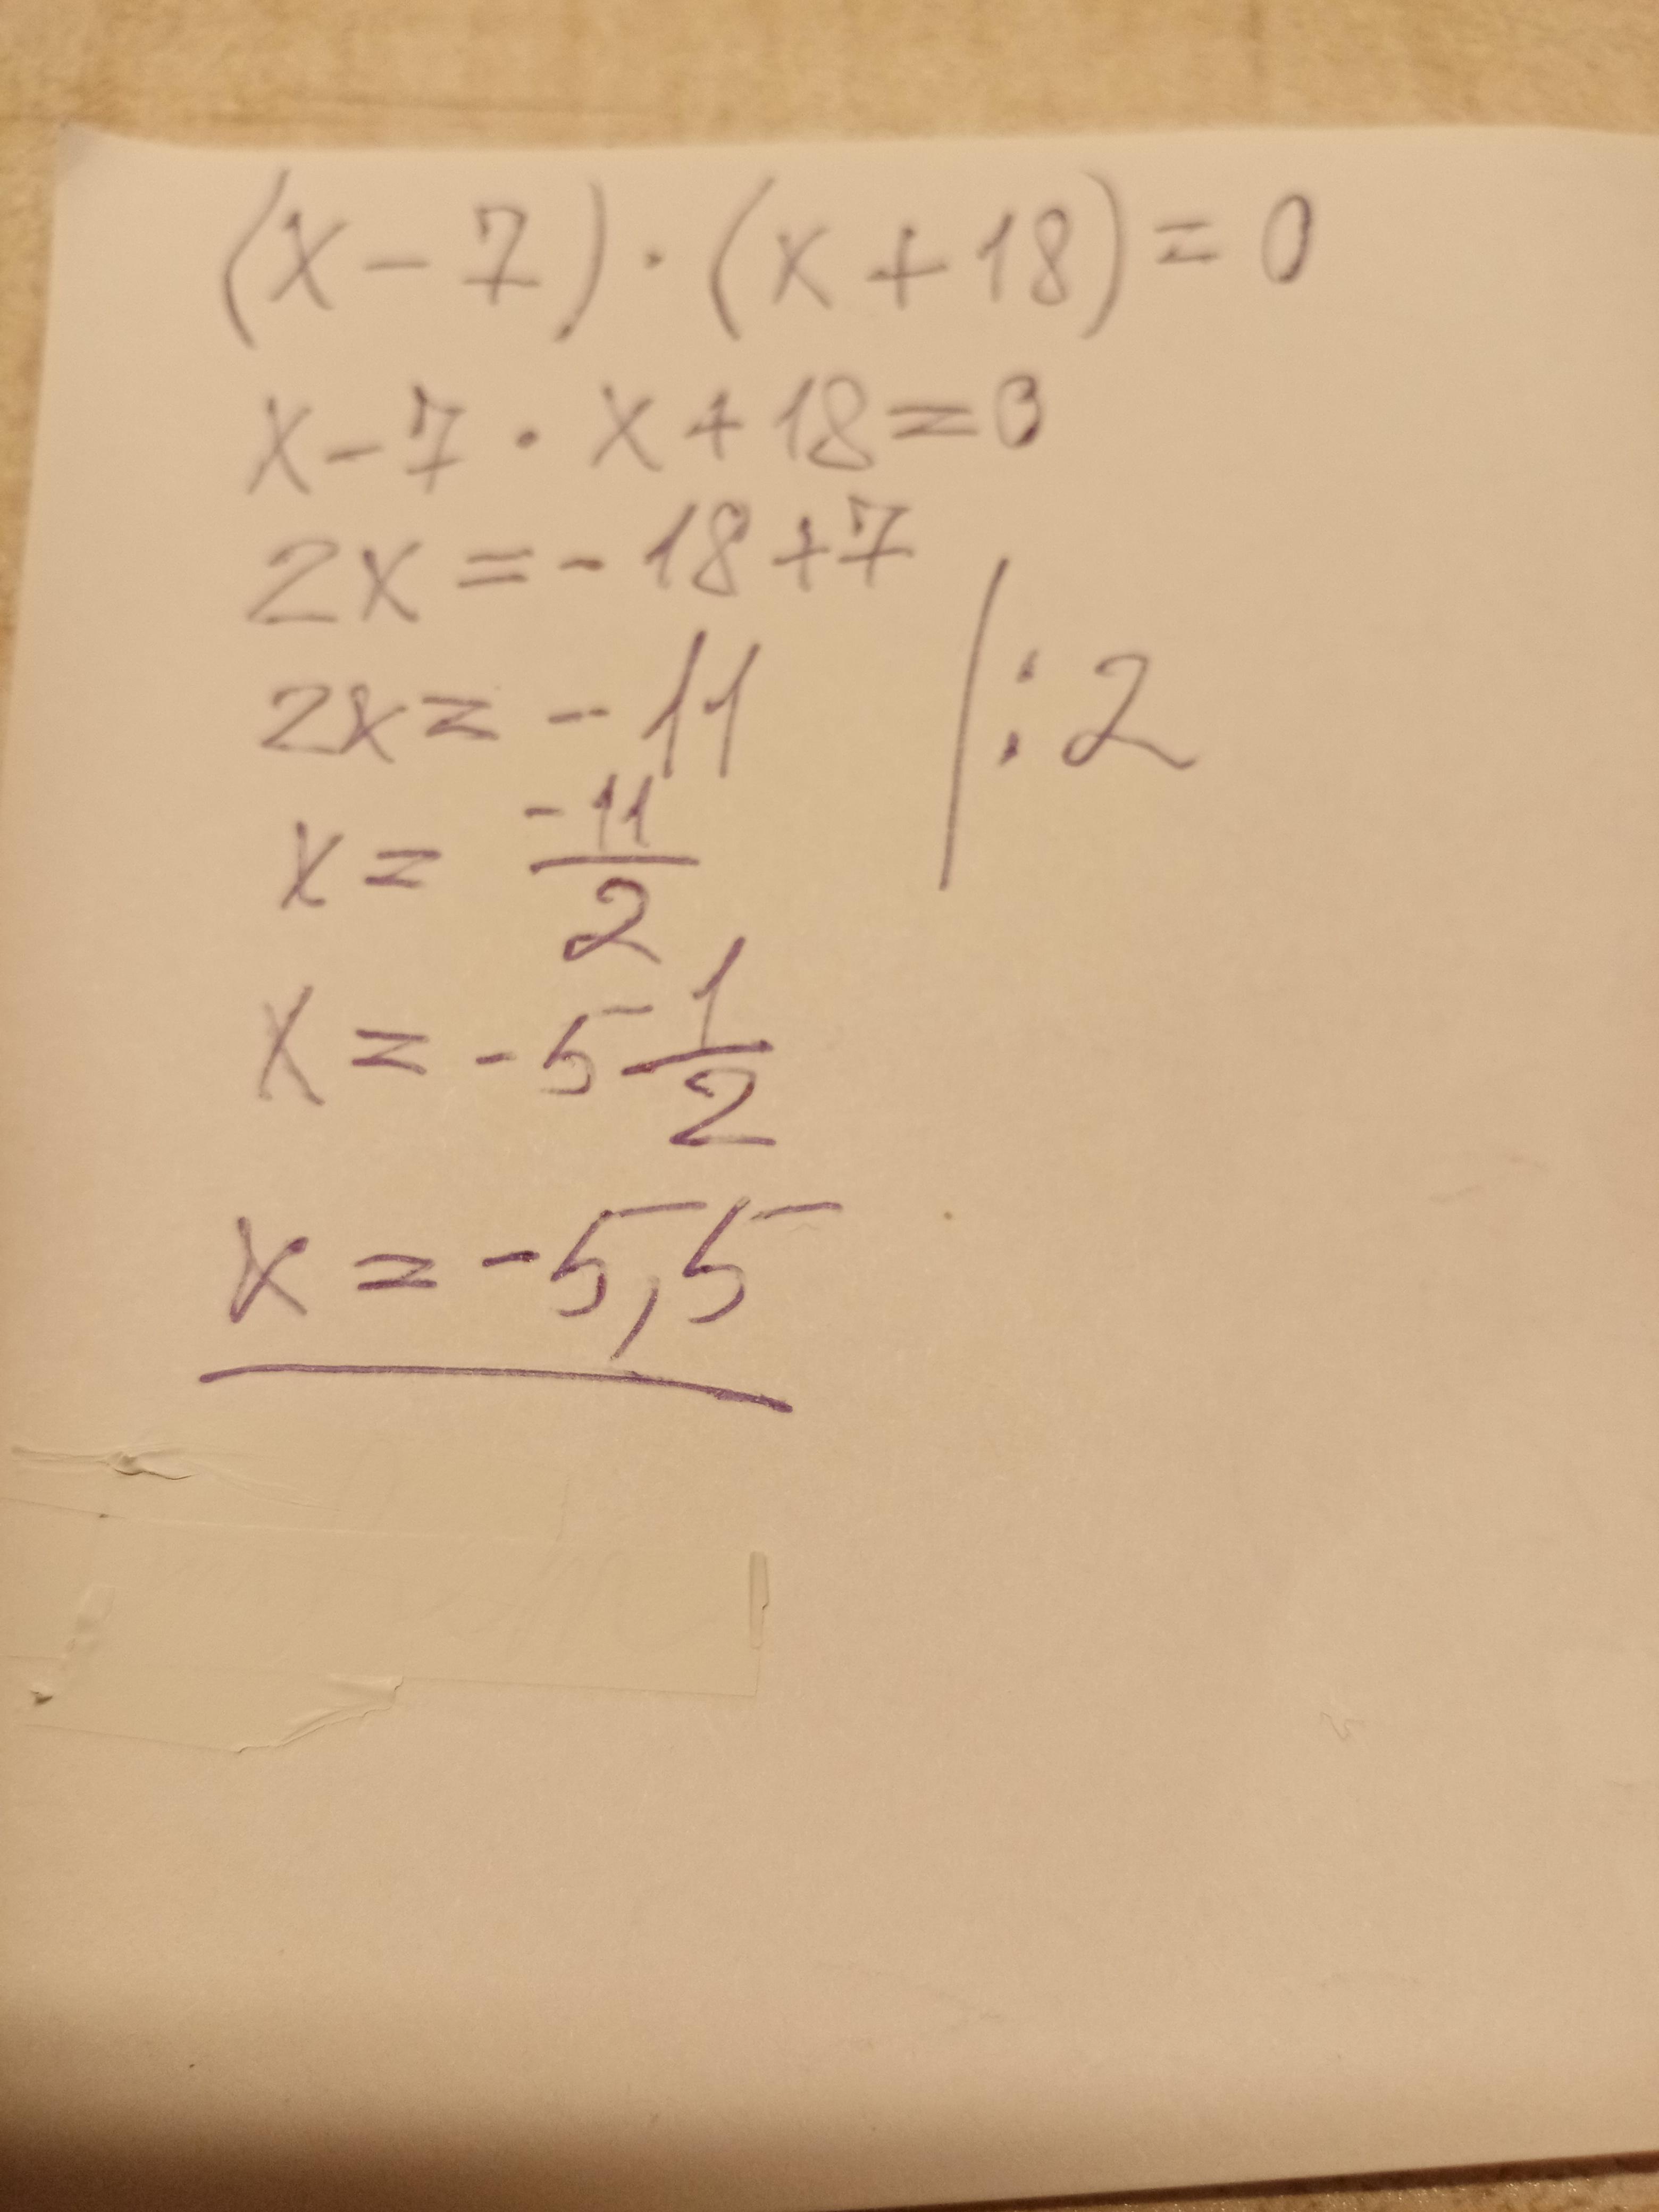 (x - 7) · (x + 18) = 0
x - 7 · x + 18 = 0
2x = - 18 + 7
2x = - 11 | : 2
x = -11/2
x = - 5 1/2
x = - 5,5